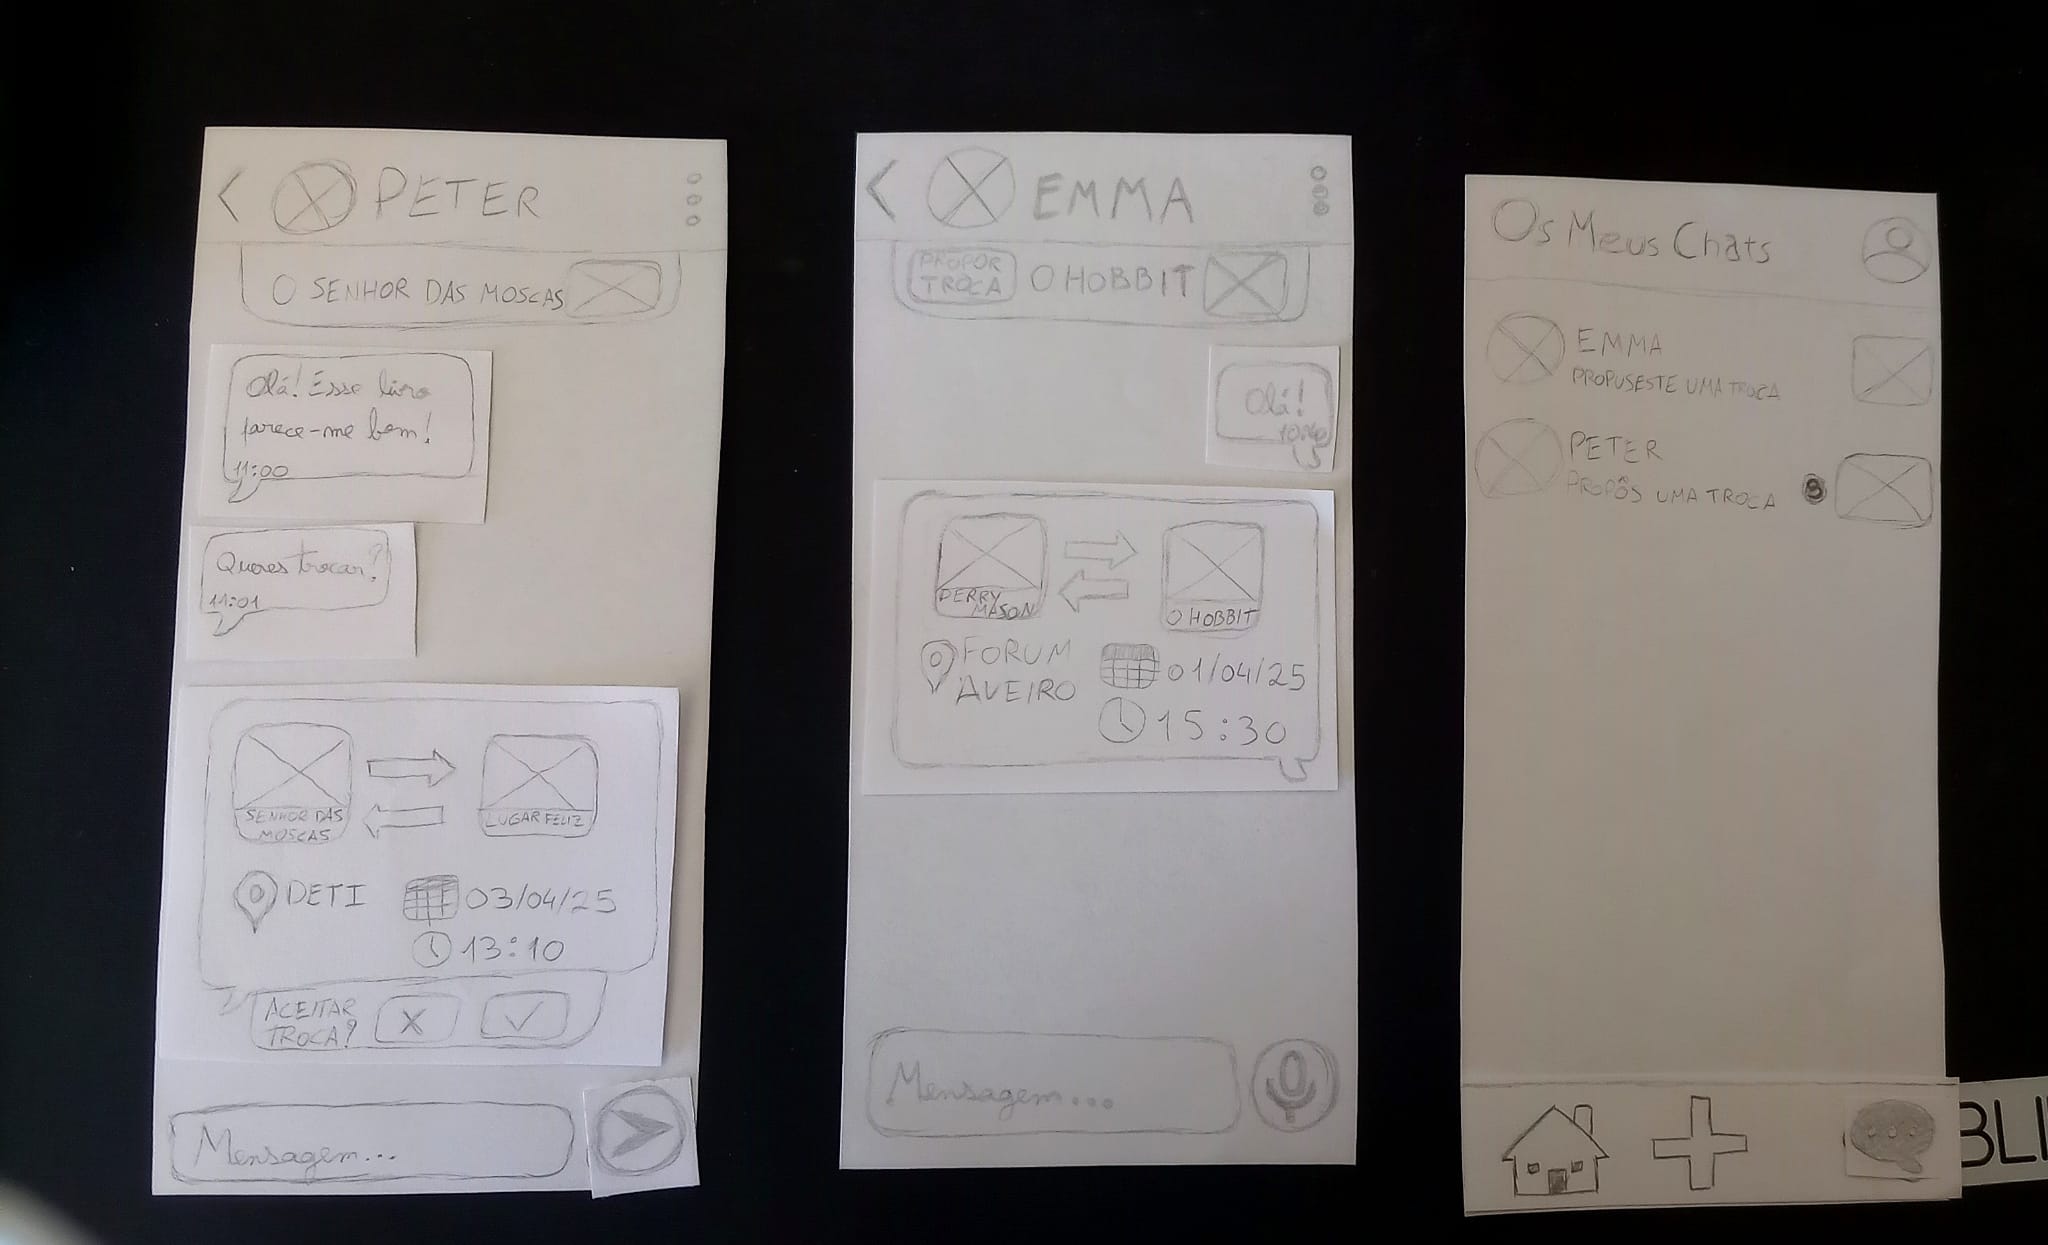 PETER
O SENHOR DAS MOSCAS
Olá! Esse livro
parece-me bem!
11:00
Queres trocar?
11:01
SENHOR DAS
MOSCAS
LUGAR FELIZ
DETI
03/04/25
13:10
ACEITAR
TROCA?
X
Mensagem...
EMMA
PROPOR
TROCA
O HOBBIT
Olá!
10:40
PERRY
MASON
O HOBBIT
FORUM
AVEIRO
01/04/25
15:30
Mensagem...
Os Meus Chats
EMMA
PROPUSESTE UMA TROCA
PETER
PROPÔS UMA TROCA
3
BLI